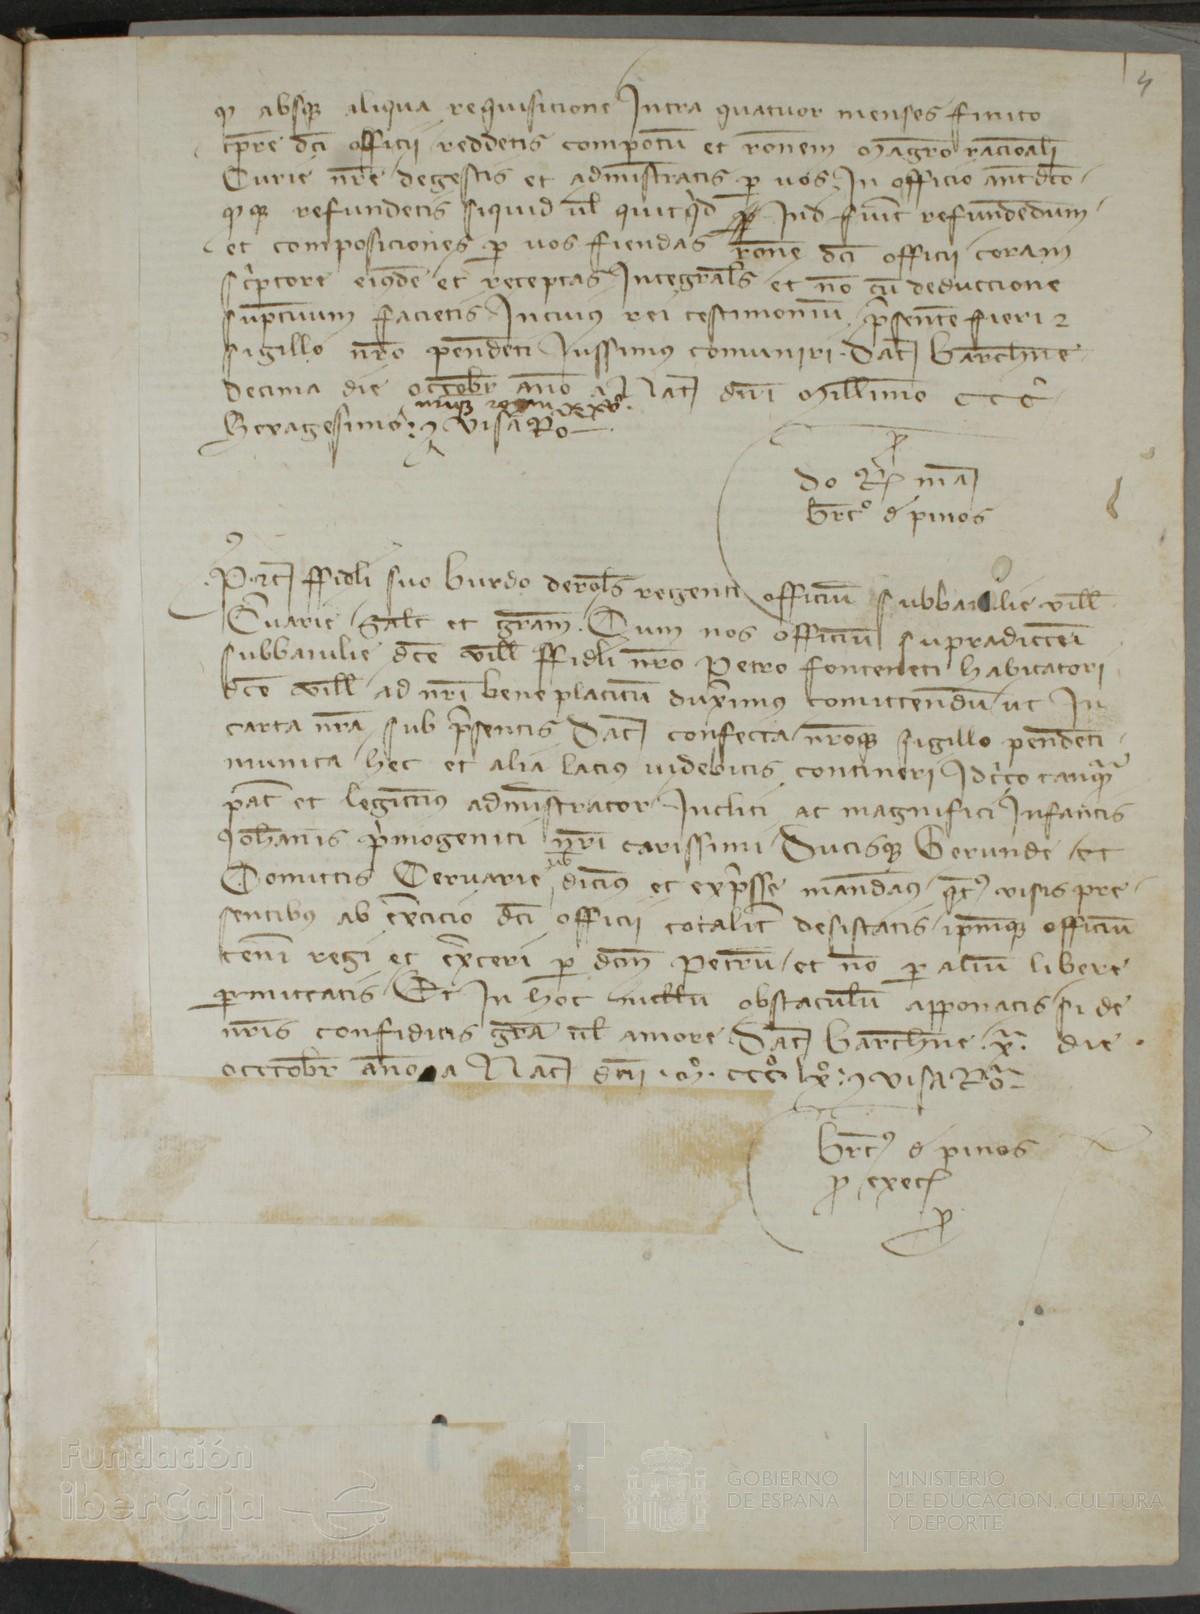 4
qd absque aliqua requisicione Intra quatuor menses finito
tpre dci officii reddetis compotum et ronem Magro racionali
Curie nre de gestis et administratis p vos In officio antdco
qdque refundetis siquid vl quicqd Ind fuit refundendum
et composiciones p vos fiendas rone dci officii coram
scptore eiusde et receptas Integralr et no cu deduccione
suptuum facietis In cuius rei testimonium psente fieri et
sigillo nro pendenti Iussimus comuniri Dat Barchne
decima die Octobr anno a Nat dni Millimo CCC
Sexagesimo visa Ro
do R ma
brt de pinos
P et ffideli suo Burdo regenti officium subbaiulie vill
Cvarie Salt et gram Cum nos officium supradictum
subbaiulie dce vill ffideli nro Petro Fonteneti habitatori
dce vill ad nri beneplacitum duximus comittendu ut In
carta nra sub psentis Dat confecta nroque sigillo pendenti
munita hec et alia lacius videbitis contineri Idcirco tanqua
pat et legitimus administrator Incliti ac magnifici Infantis
Iohanis pmogeniti nri carissimi Ducisque Gerunde et
Comitis Cervarie vob dicimus et expsse mandamus qt visis pre
sentibus ab excicio dci officii totalit desistatis ipmque officiu
teneri regi et exceri p dcm Petru et no p aliu libere
pmittatis Et In hoc nullu obstaculu apponatis si de
nris confiditis gra vl amore Dat Barchne x die
Octobr anno a Nat dni M CCC lx visa Ro
brt de pinos
p exec
Fundación
iberCaja
GOBIERNO
DE ESPAÑA
MINISTERIO
DE EDUCACIÓN, CULTURA
Y DEPORTE